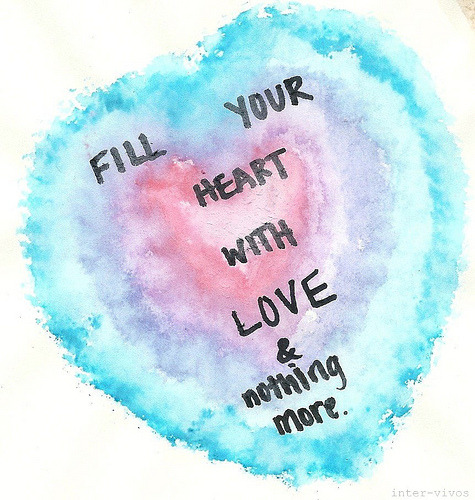 FILL YOUR
HEART
WITH
LOVE
&
nothing
more.
inter-vivos